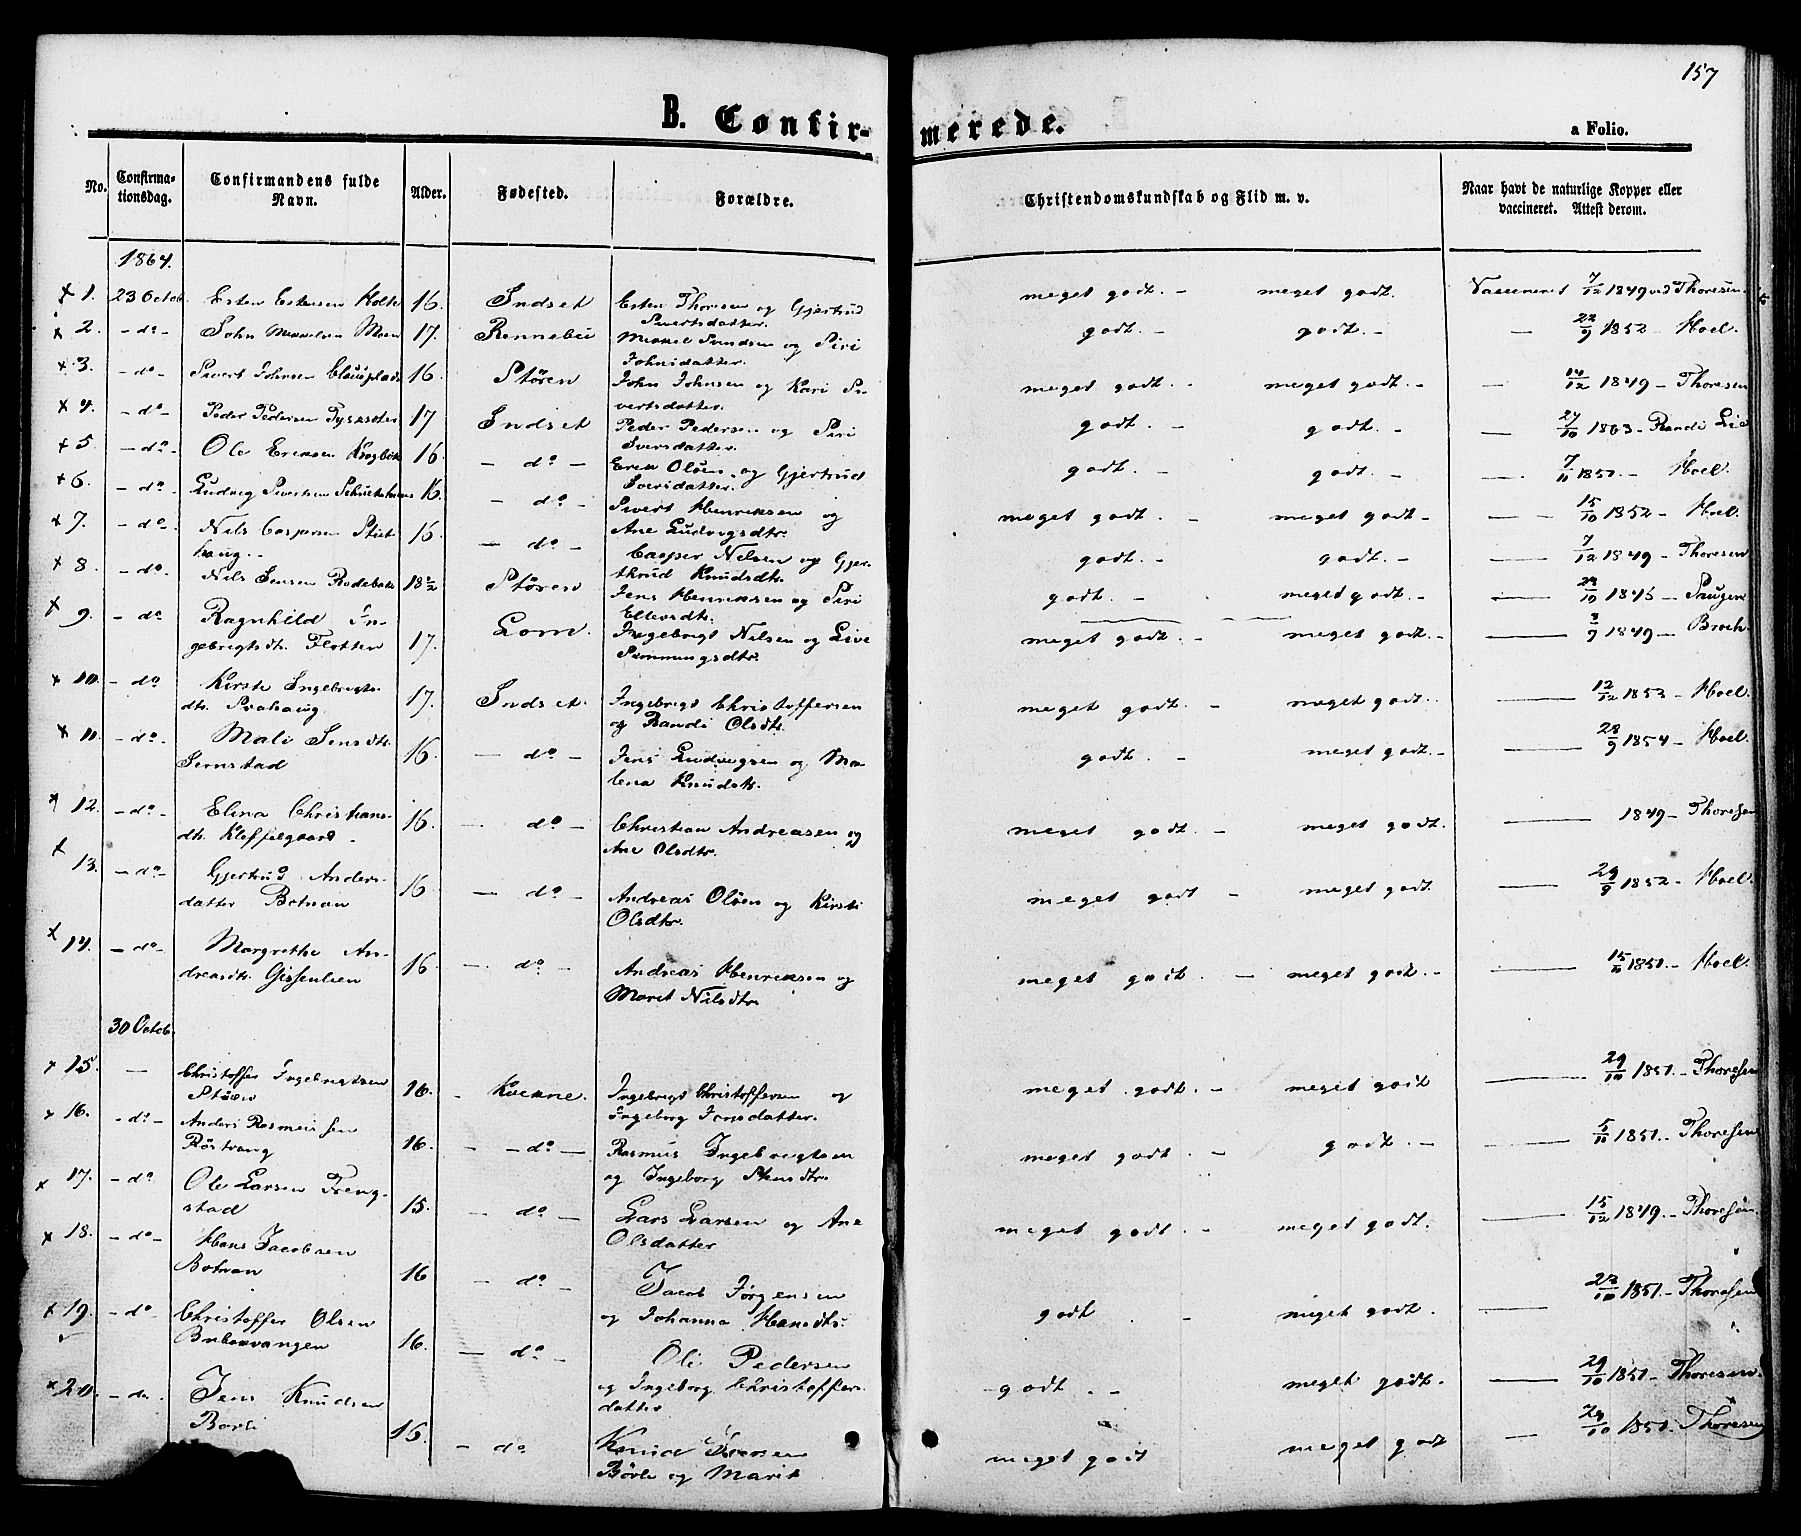 157
B. Confirmerede.
a Folio.
No. Confirmationsdag. Confirmandens fulde Navn. Alder. Fødested. Forældre. Christendomskundskab og Flid m. v. Naar havt de naturlige Kopper eller vaccineret. Attest derom.
1864.
1. 23 Octob. Esten Estensen Holte 16. Indset Esten Thoresen og Gjertrud Sivertsdatter. meget godt. – meget godt. Vaccineret 7/12 1849 ved Thoresen.
2. – do – John Mikkelsen Moen 17. Rennebu Mikkel og Siri Johnsdatter. godt. – godt. – – 22/9 1852 – Hoel.
3. – do – Sivert Johnsen 16. Støren John Johnsen og Kari Sivertsdatter. meget godt – meget godt. – – 14/12 1849 – Thoresen
4. – do – Peder Pedersen 17 Indset Peder Pedersen og Siri Iversdatter. godt. – godt. – – 27/10 1863 – Randi Lie
5. – do – Ole Eriksen 16. – do – Erik Olsen og Gjertrud Iversdatter. godt – godt. – – 7/11 1851. – Hoel.
6. – do – Ludvig Sivertsen 16. – do – Sivert Henriksen og Ane Ludvigsdtr. meget godt. – meget godt – – 15/10 1852 – Hoel.
7. – do – Nils Caspersen 16. – do – Casper Nilsen og Gjerthrud Knudsdtr. godt – godt. – – 7/12 1849 – Thoresen
8. – do – Nils Jensen 18 1/2 Støren Jens Henriksen og Siri Ellevsdtr. godt. – meget godt. – 1846 –
9. – do Ragnhild Ingebrigtsdtr. Flotten 17. Lom. Ingebrigt Nilsen og Live meget godt. – meget godt. – – 3/9 1849 – Broch.
10. – do Kirste Ingebrigtsdtr. 17. Indset. Ingebrigt Christoffersen og Randi Olsdtr. meget godt. – meget godt. – 12/12 1853 – Hoel.
11. – do – Mali Jensdtr. Jernstad 16. – do – Jens Ludvigsen og Malena Knudsdtr. godt – meget godt. – – 28/9 1854 – Hoel.
12. – do – Elina Christiansdtr. Kleffelgaard 16. – do – Christian Andreasen og Ane Olsdtr. meget godt – meget godt. – 1849 – Thoresen
13. – do – Gjertrud Andersdatter Botnan 16 – do – Andreas Olsen og Kirsti Olsdtr. meget godt – meget godt. – 29/9 1852 – Hoel.
14. – do – Margrethe Andreasdtr. 16. – do – Andreas Henriksen og Marit Nilsdtr. meget godt. – meget godt. – – 15/11 1851. – Hoel.
30 Octob.
15. – Christoffer Ingebrigtsen Støen 16. – Kvikne. Ingebrigt Christoffersen og Ingeborg Jonsdatter. meget godt. – meget godt – 29/10 1851. – Thoresen
16. – do – Anders Rasmussen 16. – do – Rasmus Ingebrigtsen og Ingeborg Stensdtr. meget godt. – godt. – – 5/11 1851. – Thoresen
17. – do Ole Larsen Frengstad 15. – do – Lars Larsen og Ane Olsdatter meget godt. – meget godt. – 15/12 1849. – Thoresen.
18. – do – Hans Jacobsen Botnan 16 – do – Jacob Jørgensen og Johanna Hansdtr. godt – meget godt. – 23/10 1851. – Thoresen
19. – do Christoffer Olsen 16. – do – Ole Pedersen og Ingeborg Christoffersdatter godt. – meget godt. – 29/10 1851 – Thoresen.
20. – do. Jens Knudsen Børli 15. – do Knud og Marit meget godt meget godt – 29/10 1851. Thoresen